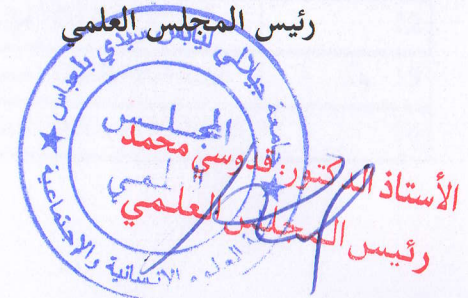 رئيس المجلس العلمي
جامعة جيلالي ليابس سيدي بلعباس
المجلس
العلمي
العلوم الإنسانية والاجتماعية
الأستاذ الدكتور: قدوسي محمد
رئيس المجلس العلمي